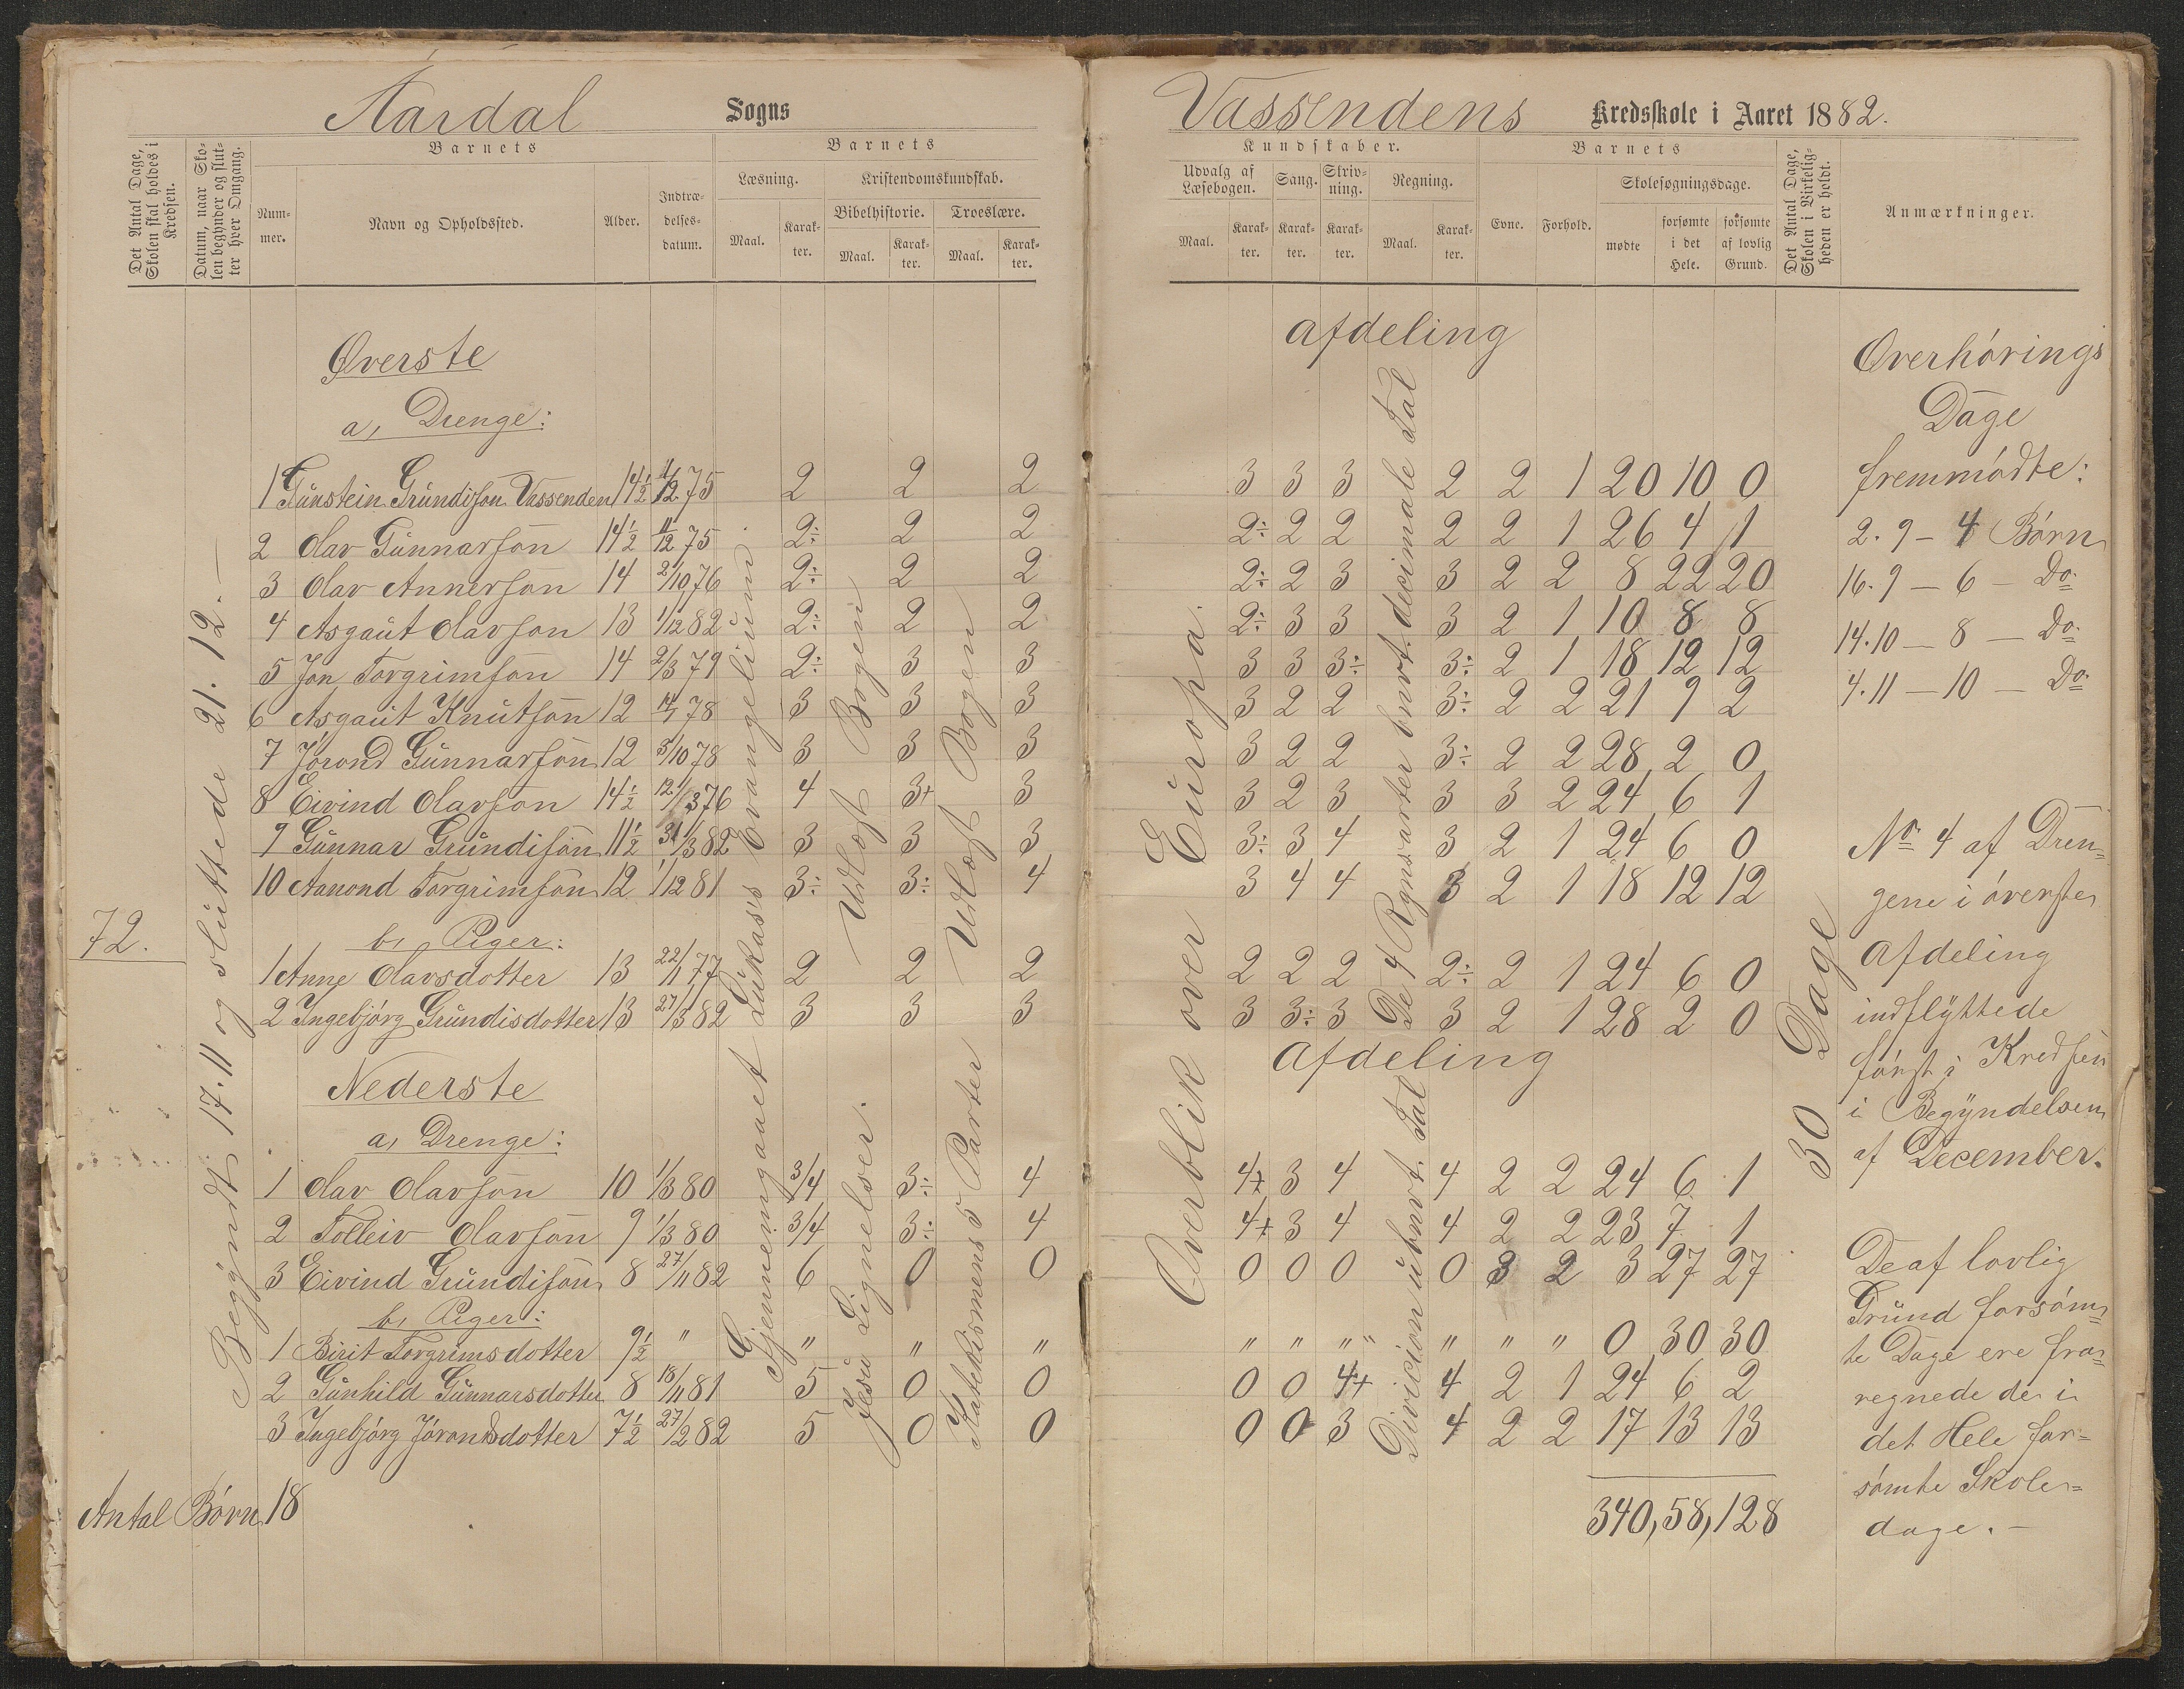 Aardal Sogns
Vassendens Kredsskole i Aaret 1882.
Det Antal Dage, Skolen skal holdes i Kredsen.
Datum, naar Skolen begynder og slutter hver Omgang.
Barnets
Nummer.
Navn og Opholdssted.
Alder.
Indtrædelsesdatum.
Barnets
Læsning.
Kristendomskundskab.
Bibelhistorie.
Troeslære.
Maal.
Karakter.
Maal.
Karakter.
Maal.
Karakter.
Kundskaber.
Udvalg af Læsebogen.
Sang.
Skrivning.
Regning.
Maal.
Karakter.
Karakter.
Karakter.
Maal.
Karakter.
Barnets
Evne.
Forhold.
Skolesøgningsdage.
mødte
forsømte i det Hele.
forsømte af lovlig Grund.
Det Antal Dage, Skolen i Virkeligheden er holdt.
Anmærkninger.
72.
Begyndt 17.11 og sluttede 21.12.—
Gjennemgaaet Lukas's Evangelium.
Udlæst Bogen
Udlæst Bogen
Overblik over Europa.
De 4 Regnearter benevt. decimale Tal
30 Dage
Øverste afdeling
a, Drenge:
1 Gunstein Grundison Vassenden 14½ 11/12 75 2 2 2 3 3 3 2 2 1 20 10 0
2 Olav Gunnarson 14½ 11/12 75 2÷ 2 2 2÷ 2 2 2 2 1 26 4 1
3 Olav Annerson 14 2/10 76 2÷ 2 2 2÷ 2 3 3 2 2 8 22 20
4 Asgaut Olavson 13 1/12 82 2÷ 2 2 2÷ 3 3 3 2 1 10 8 8
5 Jon Torgrimson 14 2/3 79 2÷ 3 3 3 3 3÷ 3÷ 2 1 18 12 12
6 Asgaut Knutson 12 14/1 78 3 3 3 3 2 2 3÷ 2 2 21 9 2
7 Jórond Gunnarson 12 3/10 78 3 3 3 3 2 2 3÷ 2 2 28 2 0
8 Eivind Olavson 14½ 12/3 76 4 3+ 3 3 2 3 3 3 2 24 6 1
9 Gunnar Grundison 11½ 31/3 82 3 3 3 3÷ 3 4 3 2 1 24 6 0
10 Aanond Torgrimson 12 1/12 81 3÷ 3÷ 4 3 4 4 3 2 1 18 12 12
b, Piger:
1 Anne Olavsdotter 13 22/1 77 2 2 2 2 2 2 2÷ 2 1 24 6 0
2 Ingebjórg Grundisdotter 13 27/3 82 3 3 3 3 3÷ 3 3 2 1 28 2 0
Nederste Afdeling
a, Drenge:
Jesu Lignelser.
Katekismens 5 Parter
Division ubnevt. Tal
1 Olav Olavson 10 1/3 80 3/4 3÷ 4 4+ 3 4 4 2 2 24 6 1
2 Tolleiv Olavson 9 1/3 80 3/4 3÷ 4 4+ 3 4 4 2 2 23 7 1
3 Eivind Grundison 8 27/11 82 6 0 0 0 0 0 0 3 2 3 27 27
b, Piger:
1 Birit Torgrimsdotter 9½ " " " " " " " " " " 0 30 30
2 Gunhild Gunnarsdotter 8 18/11 81 5 0 0 0 0 4+ 4 2 1 24 6 2
3 Ingebjórg Jórondsdotter 7½ 27/2 82 5 0 0 0 0 3 4 2 2 17 13 13
Antal Børn 18
340, 58, 128
Overhórings
Dage
fremmódte:
2.9 – 4 Børn
16.9 – 6 – Do
14.10 – 8 – Do
4.11 – 10 – Do
No 4 af Dren=
gene i óverste
Afdeling
indflyttede
fórst i Kredsen
i Begyndelsen
af December.
De af lovlig
Grund forsóm=
te Dage ere fra=
regnede de i
det Hele for=
sómte Skole=
dage.—